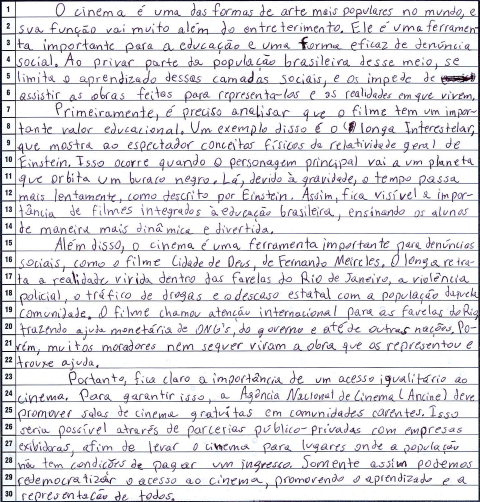 1 O cinema é uma das formas de arte mais populares no mundo, e
2 sua função vai muito além do entreterimento. Ele é uma ferramen
3 ta importante para a educação e uma forma eficaz de denúncia
4 social. Ao privar parte da população brasileira desse meio, se
5 limita o aprendizado dessas camadas sociais, e os impede de
6 assistir as obras feitas para representa-los e as realidades em que vivem.
7 Primeiramente, é preciso analisar que o filme tem um impor-
8 tante valor educacional. Um exemplo disso é o longa Interestelar,
9 que mostra ao espectador conceitos físicos da relatividade geral de
10 Einstein. Isso ocorre quando o personagem principal vai a um planeta
11 que orbita um buraco negro. Lá, devido à gravidade, o tempo passa
12 mais lentamente, como descrito por Einstein. Assim, fica visível a impor-
13 tância de filmes integrados à educação brasileira, ensinando os alunos
14 de maneira mais dinâmica e divertida.
15 Além disso, o cinema é uma ferramenta importante para denúncias
16 sociais, como o filme Cidade de Deus, de Fernando Meirelles. O longa retra-
17 ta a realidade vivida dentro das favelas do Rio de Janeiro, a violência
18 policial, o tráfico de drogas e o descaso estatal com a população daquela
19 comunidade. O filme chamou atenção internacional para as favelas do Rio,
20 trazendo ajuda monetária de ONG's, do governo e até de outras nações. Po-
21 rém, muitos moradores nem sequer viram a obra que os representou e
22 trouxe ajuda.
23 Portanto, fica claro a importância de um acesso igualitário ao
24 cinema. Para garantir isso, a Agência Nacional de Cinema (Ancine) deve
25 promover salas de cinema gratuitas em comunidades carentes. Isso
26 seria possível através de parcerias público-privadas com empresas
27 exibidoras, afim de levar o cinema para lugares onde a população
28 não tem condições de pagar um ingresso. Somente assim podemos
29 redemocratizar o acesso ao cinema, promovendo o aprendizado e a
30 representação de todos.